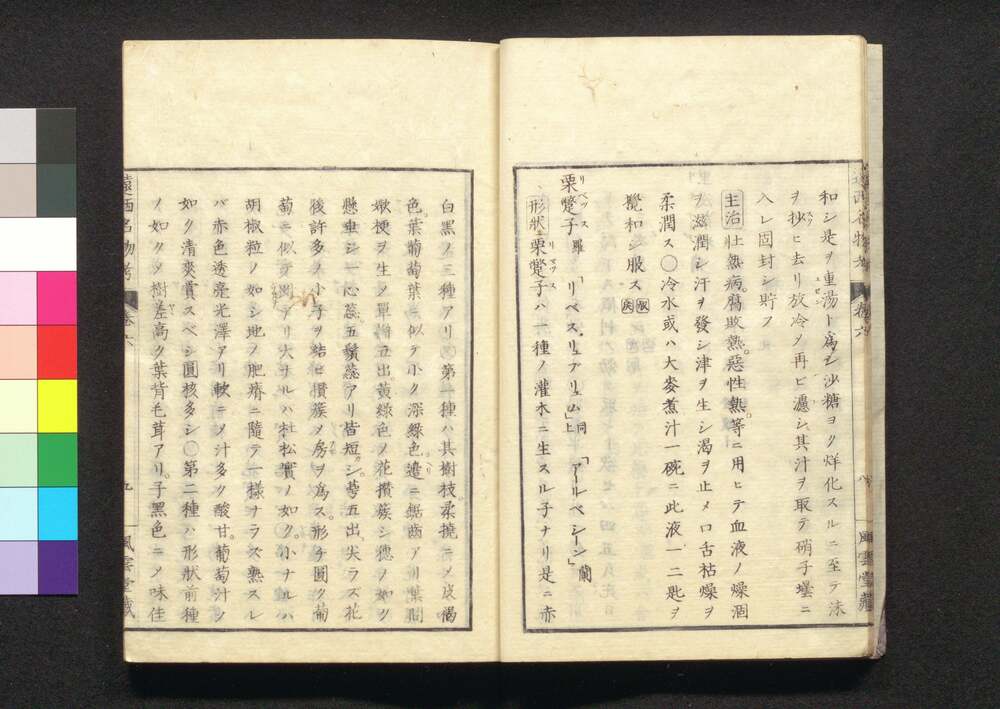 和シ是ヲ重湯ト為シ沙糖ヨク烊化スルニ至テ沫
ヲ抄ヒ去リ放冷メ再ビ濾シ其汁ヲ取テ硝子壜ニ
入レ固封シ貯フ
主治 壮熱病。腐敗熱。惡性熱。等ニ用ヒテ血液ノ燥涸
ヲ滋潤シ汗ヲ發シ津ヲ生シ渇ヲ止メ口舌枯燥ヲ
柔潤ス〇冷水或ハ大麥煮汁一碗ニ此液一二匙ヲ
攪和シ服ス
栗躄子 羅「リベス、リュブリュム」上同「アールベシーン」蘭
形狀 栗躄子ハ一種ノ灌木ニ生スル子ナリ是ニ赤
白黒ノ三種アリ〇第一種ハ其樹枝。柔撓ニメ皮褐
色。葉葡萄葉ニ似テ小ク深綠色。邊ニ鋸齒アリ葉間
嫩梗ヲ生メ單瓣五出。黄綠色ノ花攅蔟シ穗ノ如ク
懸垂シ一心蕊五鬚蕊アリ皆短。シ。萼五出、尖ラズ花
後許多ノ小子ヲ結ビ攅蔟メ房ヲ為ス。形チ圓ク葡
萄ニ似テ剛ナリ大ナルハ杜松實ノ如ク。小ナルハ
胡椒粒ノ如シ地ノ肥瘠ニ隨テ一様ナラズ熟スレ
バ赤色透亮光澤アリ軟ニメ汁多ク酸甘。葡萄汁ノ
如ク清爽賞スベシ圓核多シ〇第二種ハ形狀前種
ノ如クメ樹差高ク葉背毛茸アリ。子黒色ニメ味佳
遠西名物考 卷六 九 風雲堂藏